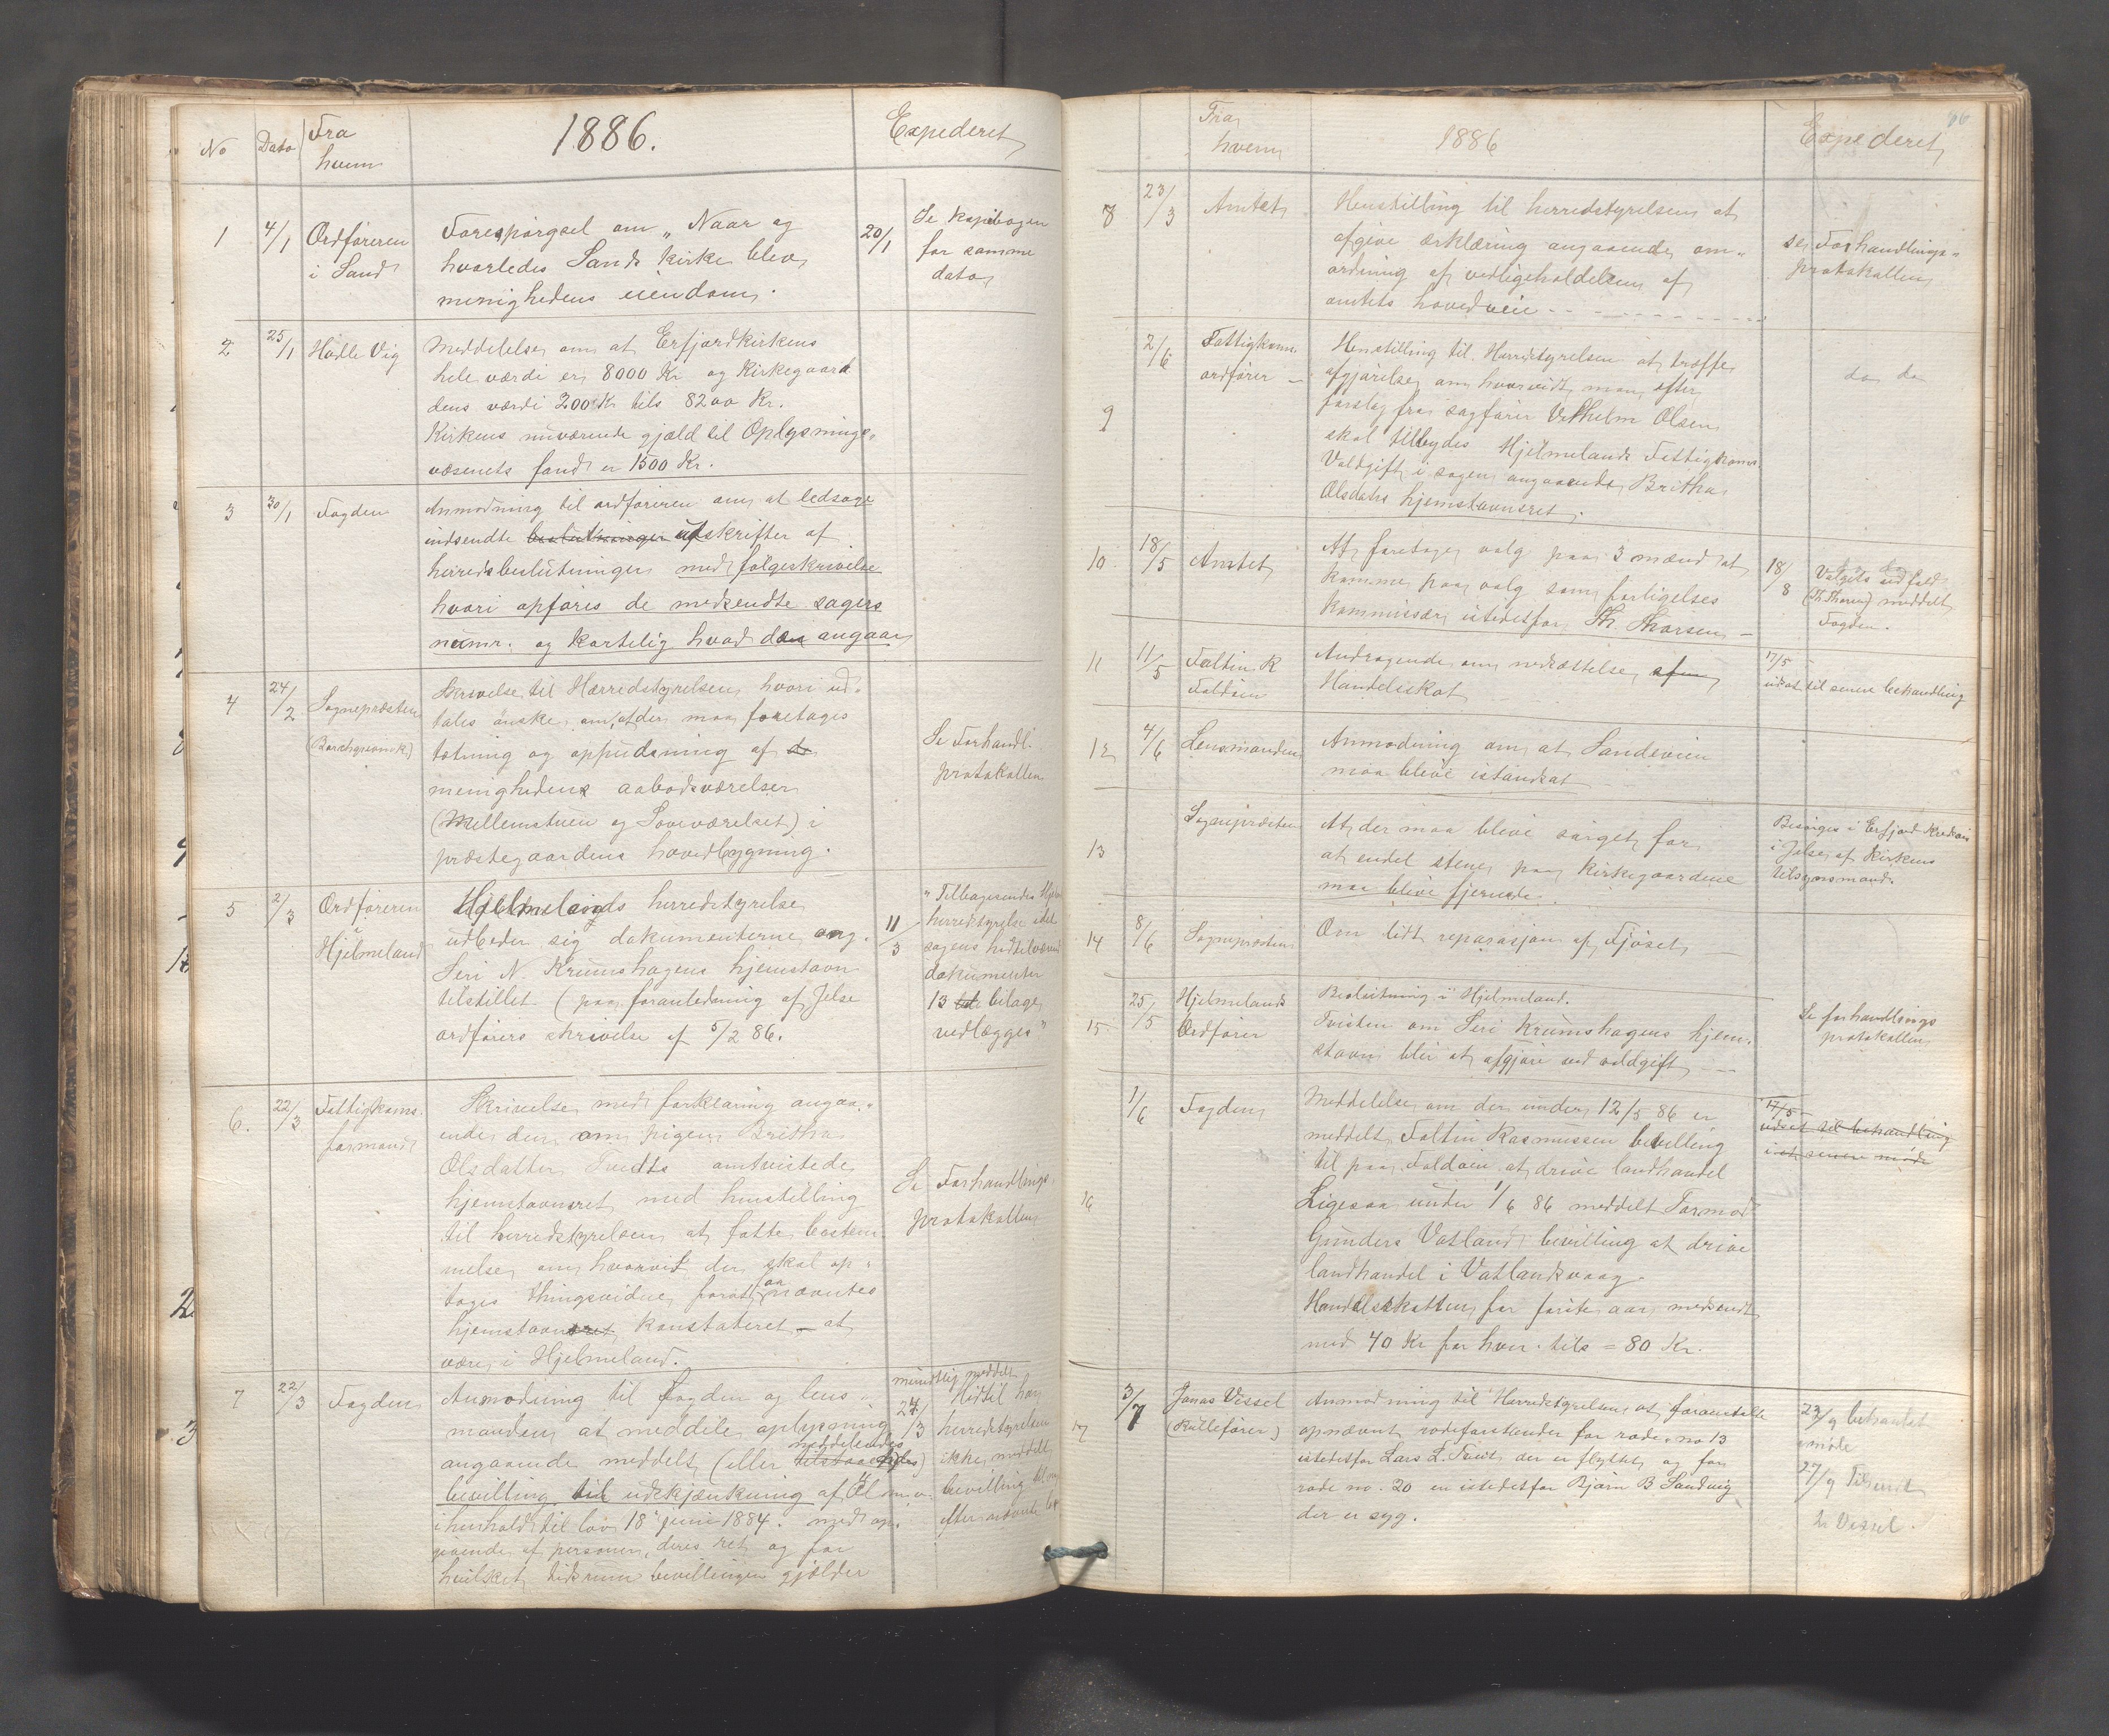 No Dato Fra hvem 1886. Expederet
1 4/1 Ordføreren i Sand
Forespørgsel om „Naar og
hvorledes Sands kirke blev
menighedens eiendom.
20/1 Se kopibogen
for samme
dato
2 25/1 Halle Vig
Meddelelse om at Erfjordkirkens
hele værdi er 8000 Kr og Kirkegaar
dens værdi 200 Kr tils 8200 Kr.
Kirkens nuværende gjæld til Oplysnings-
væsenets fond er 1500 Kr.
3 30/1 Fogden
Anmodning til ordføreren om at ledsage
indsendte beslutninger udskrifter af
herredsbeslutninger med følgeskrivelse
hvori opføres de medsendte sagers
numr. og kortelig hvad den angaar
4 24/2 Sognepræsten
(Borchgrevink)
Skrivelse til Herredstyrelsen hvori ud-
tales ønske om at der maa foretages
tætning og oppudsning af de
menighedens aabodsværelser
(Mellemstuen og Soveværelset) i
præstegaardens hovedbygning.
Se Forhandl.
protokollen
5 2/3 Ordføreren
i
Hjelmeland
Hjelmelands herredstyrelse
udbeder sig dokumenterne ang.
Seri N. Krumshagens hjemstavn
tilstillet (paa foranledning af Jelse
ordførers skrivelse af 5/2 86.
11/3 "Tilbagesendes Hjelm
herredstyrelse idet
sagens hidtilværende
dokumenter
13 stk bilage
vedlægges"
6. 22/3 Fattigkoms.
formand
Skrivelse med forklaring angaa-
ende den om pigen Britha
Olsdatter Tvedts omtvistede
hjemstavnsret med henstilling
til herredstyrelsen at fatte bestem
melse om hvorvit der skal op-
tages thingsvidne forat faa nævntes
hjemstavnsret konstateret – at
være i Hjelmeland.
Se Forhandlings.
protokollen
7 22/3 Fogden
Anmodning til fogden og lens-
manden at meddele oplysning
angaaende meddelt (eller tilstaaendes meddelendes)
bevilling til udskjænkning af Øl m. v.
i henhold til lov 18 juni 1884. med op-
givende af personen, deres ret og for
hvilket tidsrum bevillingen gjælder
mundtlig meddelt
24/3 Hidtil har
herredstyrelsen
ikke meddelt
bevilling til nog
efter nævnte lov
Fra hvem 1886 Expederet
8 23/3 Amtet
Henstilling til herredstyrelsen at
afgive erklæring angaaende om-
ordning af vedligeholdelsen af
amtets hovedveie
se Forhandlings-
protokollen
9 2/6 Fattigkom.
ordfører –
Henstilling til Herredstyrelsen at træffe
afgjørelse om hvorvidt man efter
forslag fra sagfører Vilhelm Olsen
skal tilbydes Hjelmelands Fattigkoms.
Voldgift i sagen angaaende Britha
Olsdatrs hjemstavnsret.
do do
10 18/5 Amtet
At foretage valg paa 3 mænd at
komme paa valg som forligelses
kommissær istedetfor Th. Thorsen –
18/8 do do
Valgets udfald
(Th. Thorsen) meddelt
Fogden.
11 11/5 Faltin R
Foldøen
Andragende om nedsættelse af
Handelskat
17/5
udsat til senere behandling
12 4/6 Lensmanden
Anmodning om at Sandsveien
maa blive istandsat
13 Sognepræsten
At der maa blive sørget for
at endel stene paa kirkegaardene
maa blive fjernede.
Besørges i Erfjord
i Jelse af kirkens
tilsynsmænd.
14 8/6 Sognepræsten
Om lidt reparasjon af Fjøset
15 25/5 Hjelmelands
Ordfører
Beslutning i Hjelmeland.
Tvisten om Seri Krumshagens hjem-
stavn blir at afgjøre ved voldgift
Se forhandlings
protokollen
16 1/6 Fogden
Meddelelse om den under 12/5 86 er
meddelt Faltin Rasmussen bevilling
til paa Foldøen at drive landhandel
Ligesaa under 1/6 86 meddelt Tormod
Gunders Vatland bevilling at drive
landhandel i Vatlandsvaag.
Handelsskatten for første aar medsendt
med 40 Kr for hver. tils = 80 Kr.
17/5
udsat til behandling
i et senere møde
17 3/7 Jonas Vissel
(Rullefører)
Anmodning til Herredstyrelsen at foranstalte
opnævnt rodeforstander for rode no 13
istedetfor Lars L. Tveit der er flyttet og for
rode no. 20 en istedetfor Bjørn B Sandvig
der er syg.
23/9 behandlet
i møde
27/9 Tilsendt
hr Vissel.